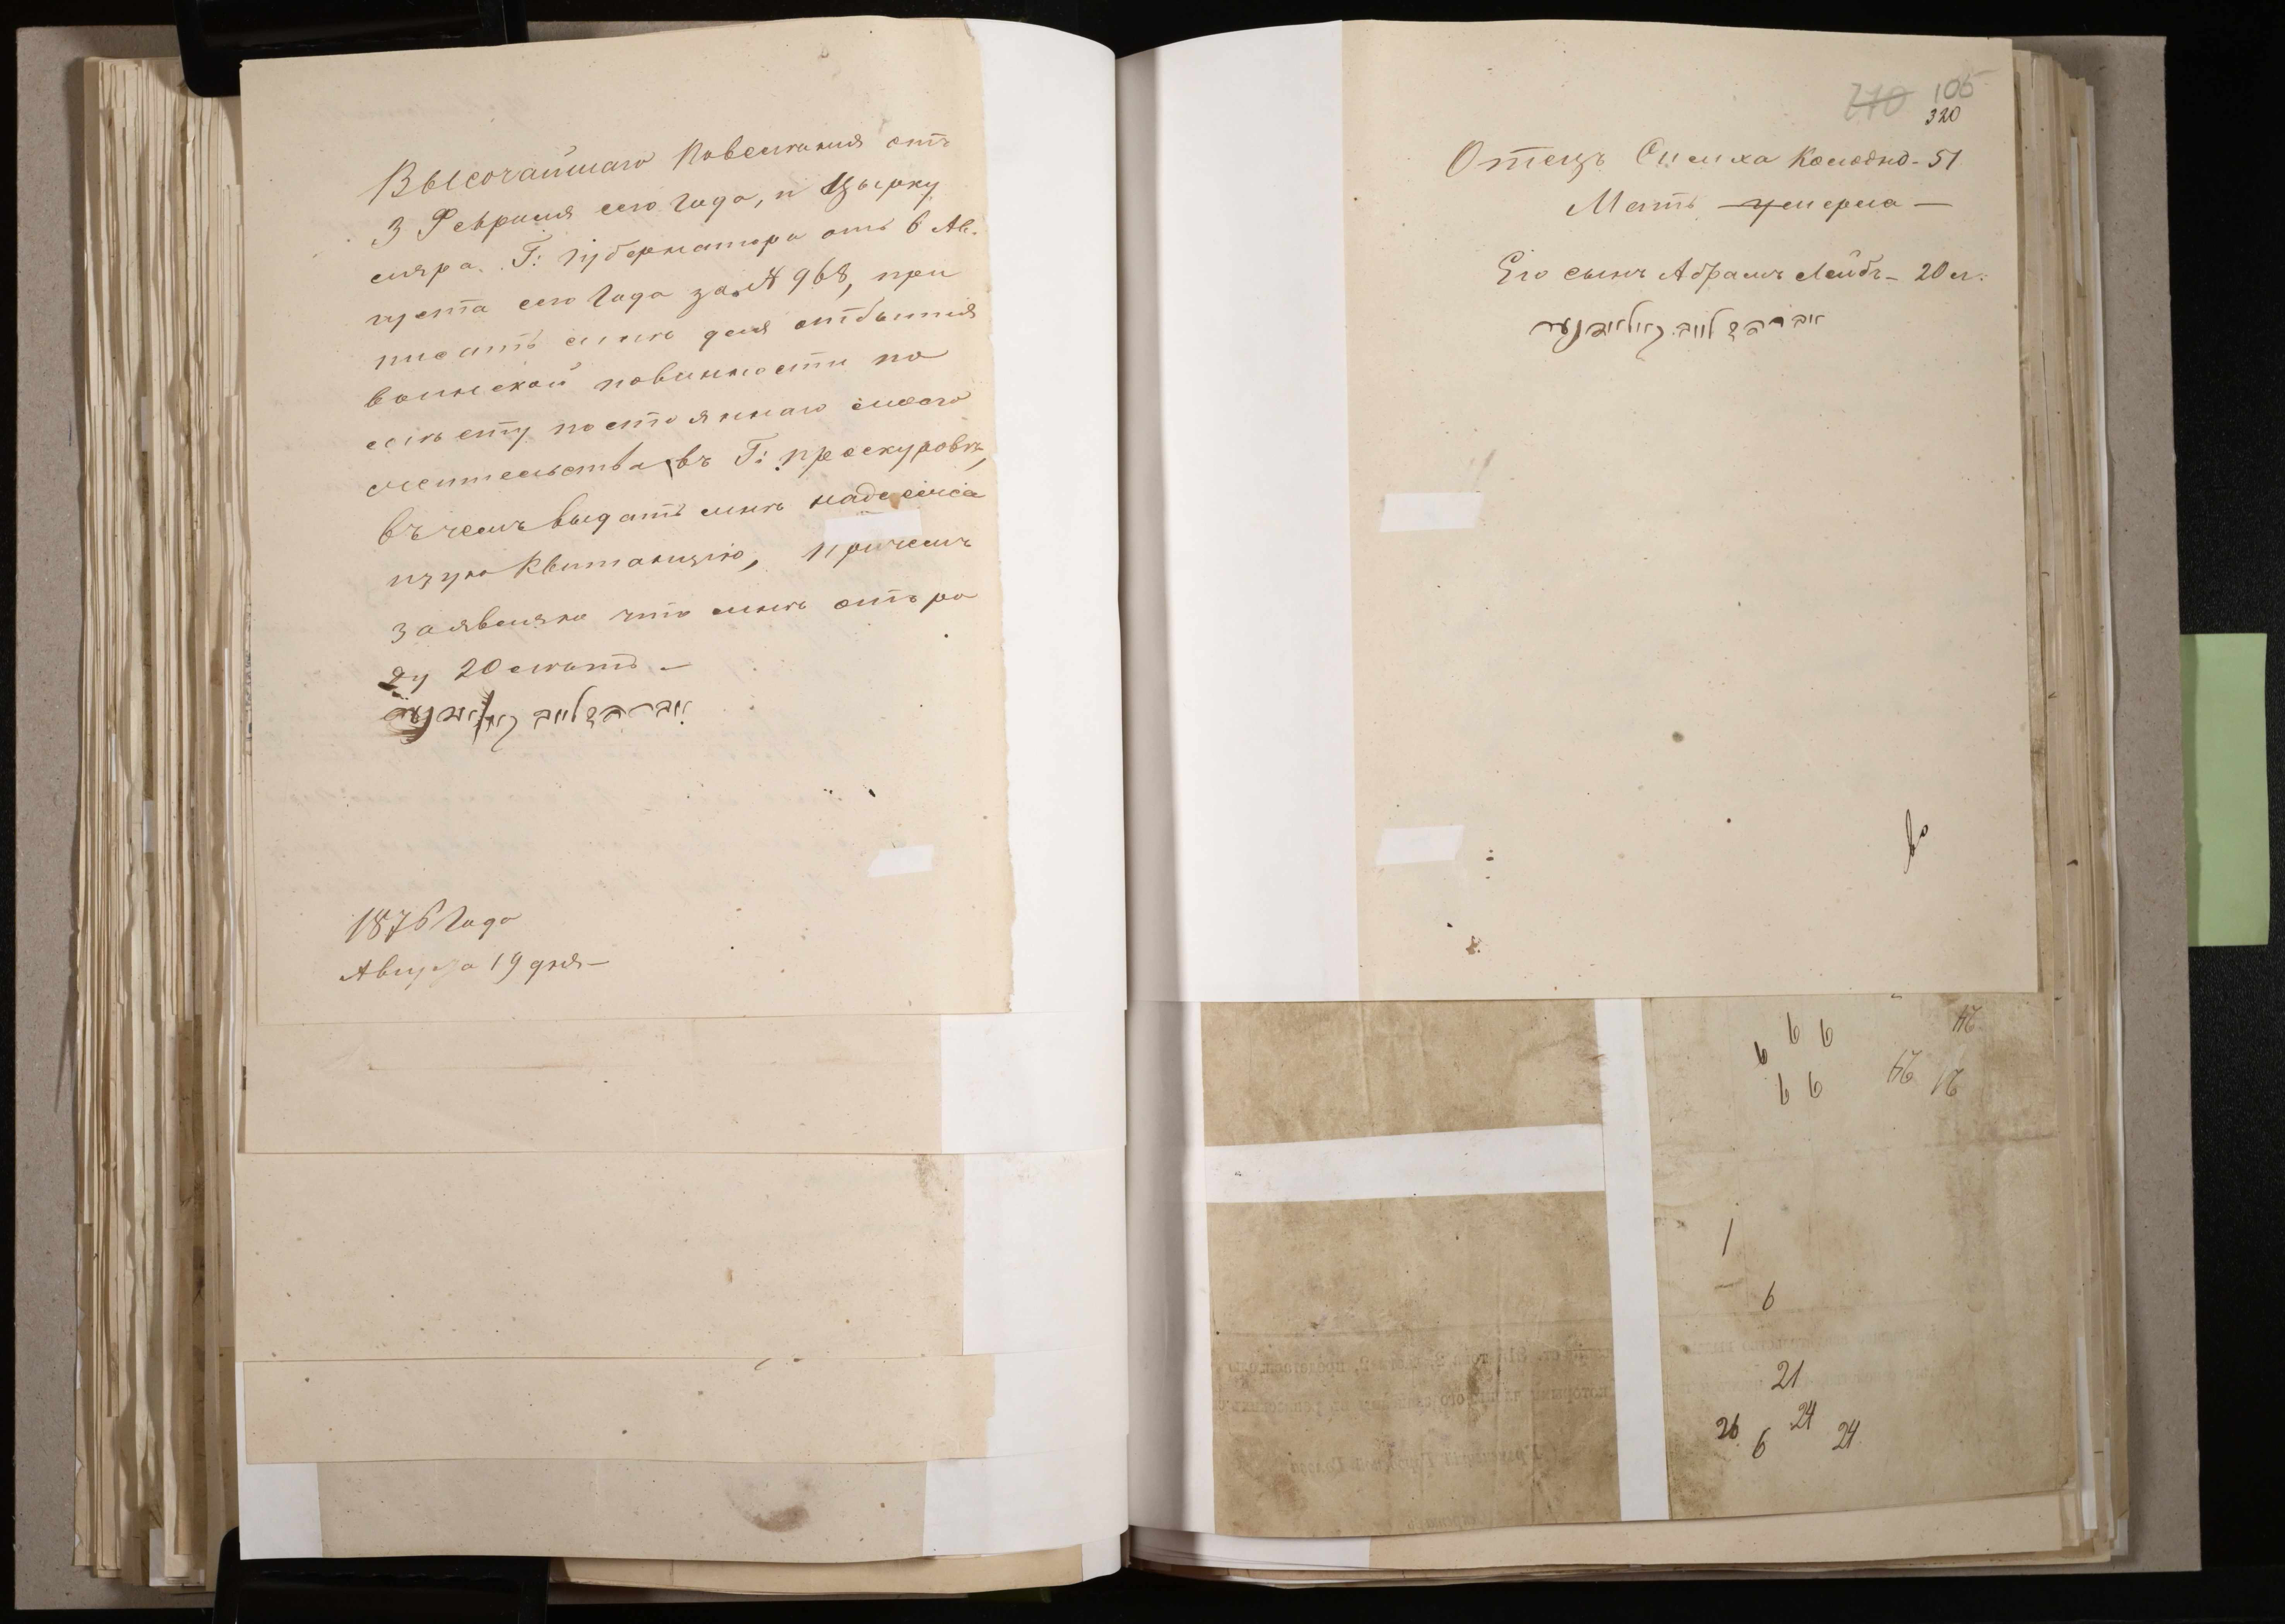 Высочайшаго Повеленія отъ
3 Февраля сего Года, и Цырку
ляра Г: Губернатора отъ 6 Ав-
густа сего Года за № 968, при
писать мнѣ для отбытія
воинской повинности по
мѣсту постояннаго моего
жительства въ Г: Проскуровѣ,
въ чемъ выдать мнѣ надлежа
щую Квитанцію, причемъ
заявляю что мнѣ отъ ро
ду 20 лѣтъ —
אברהם לייב
1876 Года
Августа 19 дня —
770 105
320
Отецъ Симха Колодно - 51
Мать — умерла —
Его сынъ Абрамъ Лейбъ - 20 л:
אברהם לייב
6 6 6
6 6
24
24 21
1
6
21
26 6 24 24